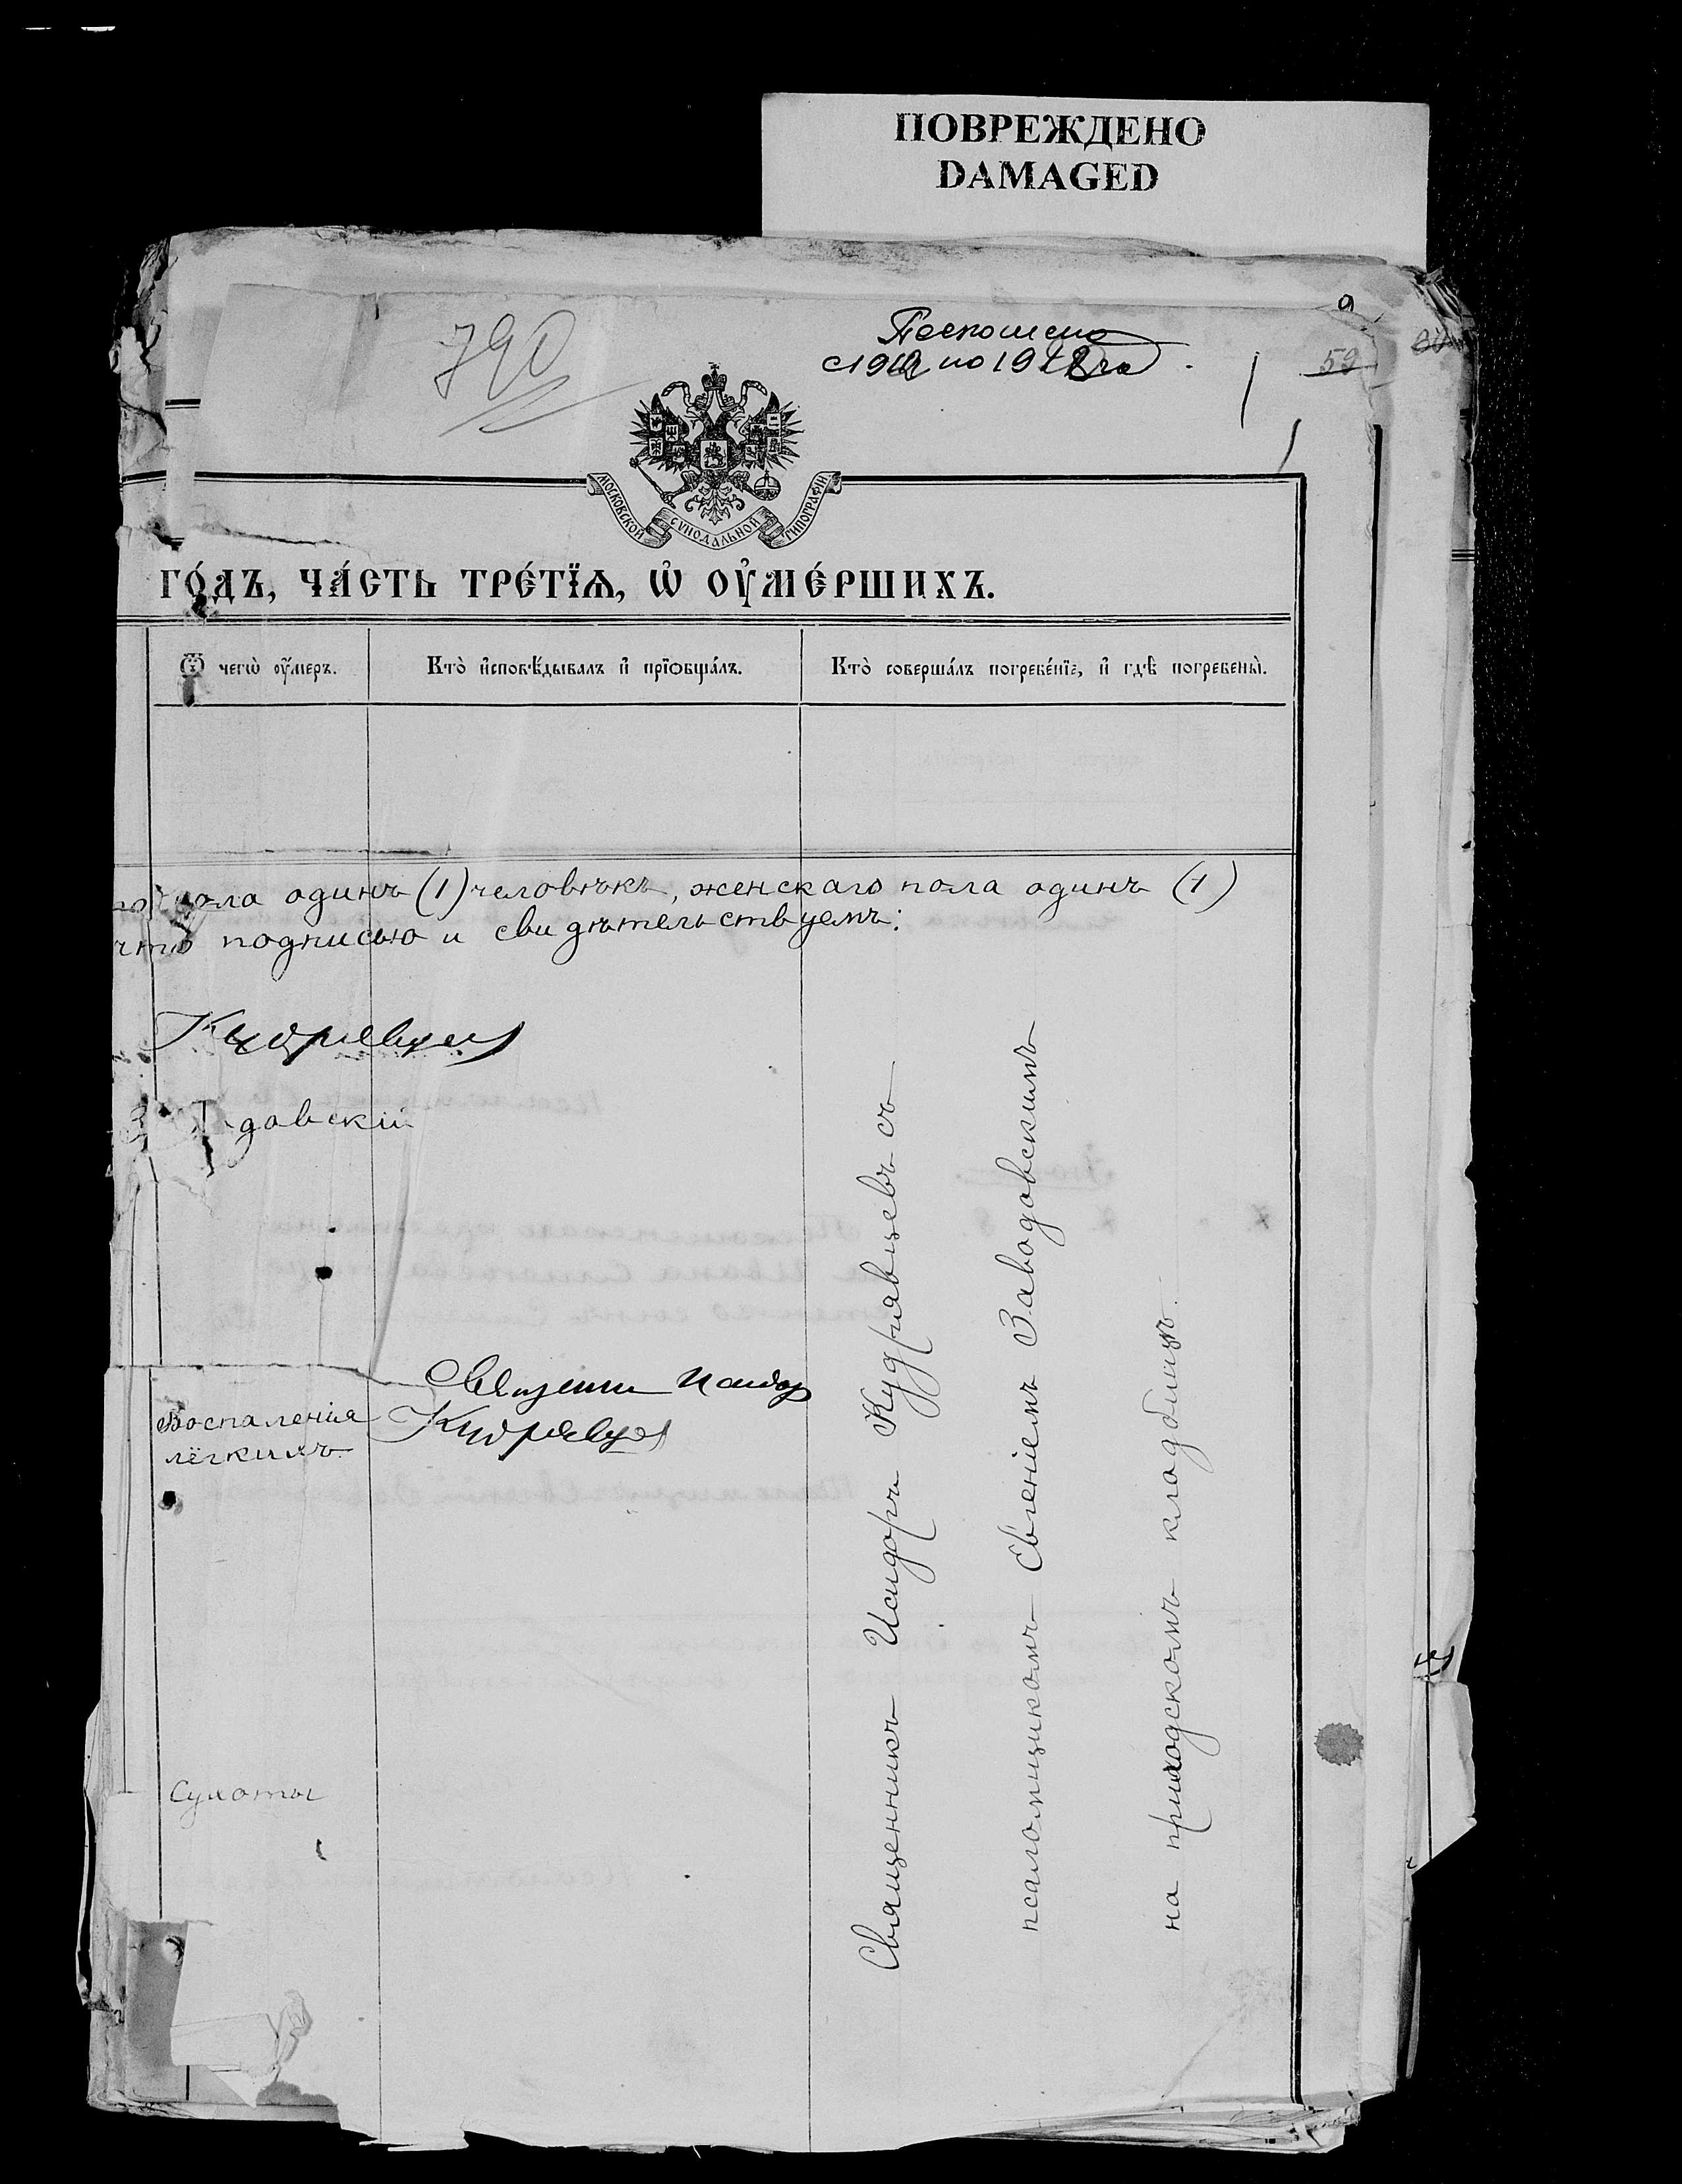 ПОВРЕЖДЕНО
DAMAGED
790
59
МОСКОВСКОЙ СУНОДАЛЬНОЙ ТИПОГРАФІИ
ГО́ДЪ, ЧА́СТЬ ТРЕ́ТЇѦ, Ѡ҆ ОУ҆МЕ́РШИХЪ.
Ѿ чегѡ̀ оу҆́меръ.
Кто̀ и҆сповѣ́дывалъ и҆ прїѡбща́лъ.
Кто̀ соверша́лъ погребе́нїе, и҆ гдѣ̀ погребены̀.
пола одинъ (1) человѣкъ, женскаго пола одинъ (1)
что подписью и свидѣтельствуемъ:
Кудрявцев
довскій
Воспаленія
лёгкихъ
Священник Исидор
Кудрявцев
Сухоты
Священникъ Исидоръ Кудрявцевъ съ
псаломщикомъ Евгеніемъ Заводовскимъ
на приходскомъ кладбищѣ.